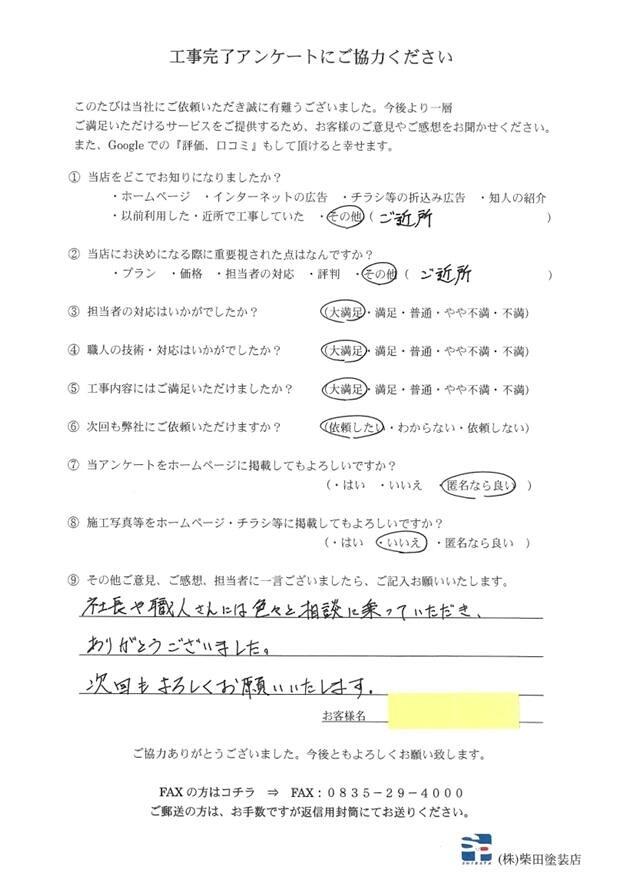 工事完了アンケートにご協力ください
このたびは当社にご依頼いただき誠に有難うございました。今後より一層
ご満足いただけるサービスをご提供するため、お客様のご意見やご感想をお聞かせください。
また、Googleでの『評価、口コミ』もして頂けると幸せます。
① 当店をどこでお知りになりましたか？
・ホームページ ・インターネットの広告 ・チラシ等の折込み広告 ・知人の紹介
・以前利用した・近所で工事していた ・その他（ ご近所 ）
② 当店にお決めになる際に重要視された点はなんですか？
・プラン ・価格 ・担当者の対応 ・評判 ・その他（ ご近所 ）
③ 担当者の対応はいかがでしたか？ （大満足・満足・普通・やや不満・不満）
④ 職人の技術・対応はいかがでしたか？ （大満足・満足・普通・やや不満・不満）
⑤ 工事内容にはご満足いただけましたか？ （大満足・満足・普通・やや不満・不満）
⑥ 次回も弊社にご依頼いただけますか？ （依頼したい・わからない・依頼しない）
⑦ 当アンケートをホームページに掲載してもよろしいですか？
（・はい ・いいえ ・匿名なら良い ）
⑧ 施工写真等をホームページ・チラシ等に掲載してもよろしいですか？
（・はい ・いいえ ・匿名なら良い ）
⑨ その他ご意見、ご感想、担当者に一言ございましたら、ご記入お願いいたします。
社長や職人さんには色々と相談に乗っていただき、
ありがとうございました。
次回もよろしくお願いいたします。
お客様名
ご協力ありがとうございました。今後ともよろしくお願い致します。
FAXの方はコチラ ⇒ FAX：0835－29－4000
ご郵送の方は、お手数ですが返信用封筒にてお送りください。
SHIBATA
(株)柴田塗装店